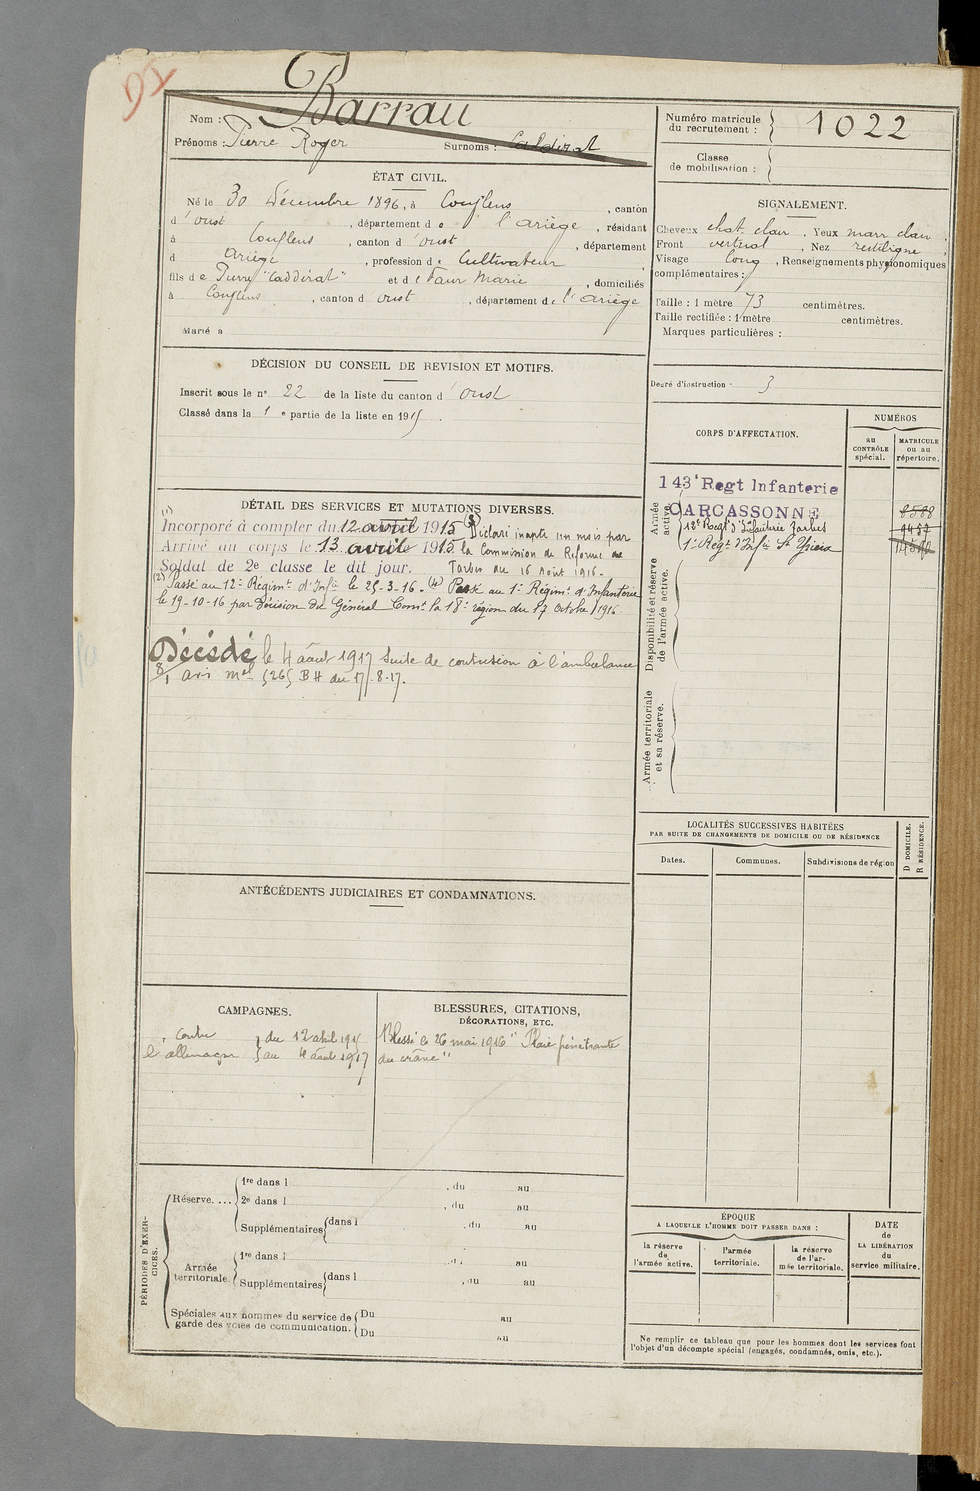 Barrau
Nom :
Prénoms : Pierre Roger Surnoms :
Numéro matricule
du recrutement : 1022
Classe
de mobilisation :
ÉTAT CIVIL.
Né le 30 Décembre 1896, à Couflens, canton
d'oust, département de l'ariège, résidant
à Couflens, canton d'oust, département
d Ariège, profession de Cultivateur,
fils de Pierre "Caddirat" et de Faur Marie, domiciliés
à Couflens, canton d oust, département de l'ariège
Marié à
SIGNALEMENT.
Cheveux chat. clair. Yeux marr clair,
Front vertical, Nez rectiligne,
Visage long, Renseignements physionomiques
complémentaires :
Taille : 1 mètre 73 centimètres.
Taille rectifiée : 1 mètre centimètres.
Marques particulières :
DÉCISION DU CONSEIL DE REVISION ET MOTIFS.
Inscrit sous le n° 22 de la liste du canton d'oust
Classé dans la 1e partie de la liste en 1915
Degré d'instruction : 3
CORPS D'AFFECTATION.
NUMÉROS
au
CONTRÔLE
spécial.
MATRICULE
ou au
répertoire.
143e Regt Infanterie
CARCASSONNE
12e Regt d'Infanterie Tarbes
1er Regt d'Infie St Yrieix
Armée
active.
Disponibilité et réserve
de l'armée active.
Armée territoriale
et sa réserve.
DÉTAIL DES SERVICES ET MUTATIONS DIVERSES.
(1)
Incorporé à compter du 12 avril 1915 (3) Déclaré inapte un mois par
Arrivé au corps le 13 avril 1915 la Commission de Réforme de
Soldat de 2e classe le dit jour. Tarbes du 16 Août 1916.
(2) Passé au 12e Régimt d'Infie le 25-3-16. (4) Passé au 1er Régimt d'Infanterie
le 19-10-16 par décision du Général Comt la 18e région du 17 Octobre 1916
Décédé le 4 août 1917 Suite de contusion à l'ambulance
8/1 avis mel 5265 BH du 17-8-17.
LOCALITÉS SUCCESSIVES HABITÉES
PAR SUITE DE CHANGEMENTS DE DOMICILE OU DE RÉSIDENCE
Dates.
Communes.
Subdivisions de région
D DOMICILE.
R RÉSIDENCE.
ANTÉCÉDENTS JUDICIAIRES ET CONDAMNATIONS.
CAMPAGNES.
contre du 12 avril 1915
l'allemagne au 4 août 1917
BLESSURES, CITATIONS,
DÉCORATIONS, ETC.
Blessé le 26 mai 1916 "Plaie pénétrante
du crâne"
PÉRIODES D'EXER-
CICES.
Réserve....
1re dans l , du au
2e dans l , du au
Supplémentaires dans l , du au
Armée
territoriale.
1re dans l , du au
Supplémentaires dans l , du au
Spéciales aux hommes du service de
garde des voies de communication.
Du au
Du au
ÉPOQUE
A LAQUELLE L'HOMME DOIT PASSER DANS :
la réserve
de
l'armée active.
l'armée
territoriale.
la réserve
de l'ar-
mée territoriale.
DATE
de
LA LIBÉRATION
du
service militaire.
Ne remplir ce tableau que pour les hommes dont les services font
l'objet d'un décompte spécial (engagés, condamnés, omis, etc.).